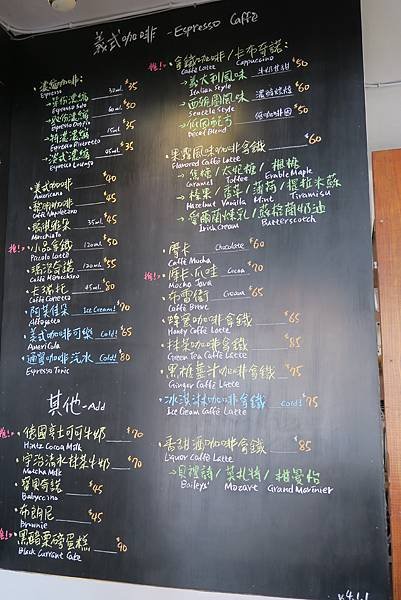 義式咖啡 - Espresso Caffè
濃縮咖啡:
Espresso 30ml $35
Espresso Solo $40
60ml $50
Espresso Doppio
15ml $35
Espresso Ristretto
45ml $35
Espresso Lungo
美式咖啡 $40
Americano
$45
Caffè Napoletano
45ml $45
Macchiato
推! 小品拿鐵 120ml $50
Piccolo Latte
瑪洛奇諾 120ml $55
Caffè Marocchino
卡瑞托 45ml $80
Caffè Corretto
阿芙佳朵 Ice Cream! $70
Affogato
義式咖啡可樂 Cold! $85
AmeriCola
通寧咖啡汽水 Cold! $80
Espresso Tonic
其他 - Add
推! 德國亨士可可牛奶 $70
Hintz Cocoa Milk
宇治清水抹茶牛奶 $70
Matcha Milk
寶貝奇諾 $45
Babyccino
布朗尼 $45
Brownie
推! 黑醋栗磅蛋糕 $90
Black Currant Cake
推! 拿鐵咖啡/卡布奇諾: $50
Caffè Latte Cappuccino
→義大利風味 $50
Italian Style
→西雅圖風味 濃焙烘焙 $60
Seattle Style
→低因配方 低咖啡因 $50
Decaf Blend
果露風味咖啡拿鐵 $60
Flavored Caffè Latte
→焦糖/太妃糖/楓糖
Caramel Toffee Maple
→榛果/香草/薄荷/提拉米蘇
Hazelnut Vanilla Mint Tiramisu
→愛爾蘭煉乳/蘇格蘭奶油
Irish Cream Butterscotch
摩卡 Chocolate $60
Caffè Mocha
推! 摩卡·爪哇 Cocoa $70
Mocha Java
布雷衛 Cream $65
Caffè Breve
蜂蜜咖啡拿鐵 $65
Honey Caffè Latte
抹茶咖啡拿鐵 $85
Green Tea Caffè Latte
黑糖薑汁咖啡拿鐵 $75
Ginger Caffè Latte
冰淇淋咖啡拿鐵 Cold! $95
Ice Cream Caffè Latte
香甜酒咖啡拿鐵 $85
Liquor Caffè Latte
→貝禮詩/莫札特/柑曼怡
Baileys Mozart Grand Marnier
v.4.1.1